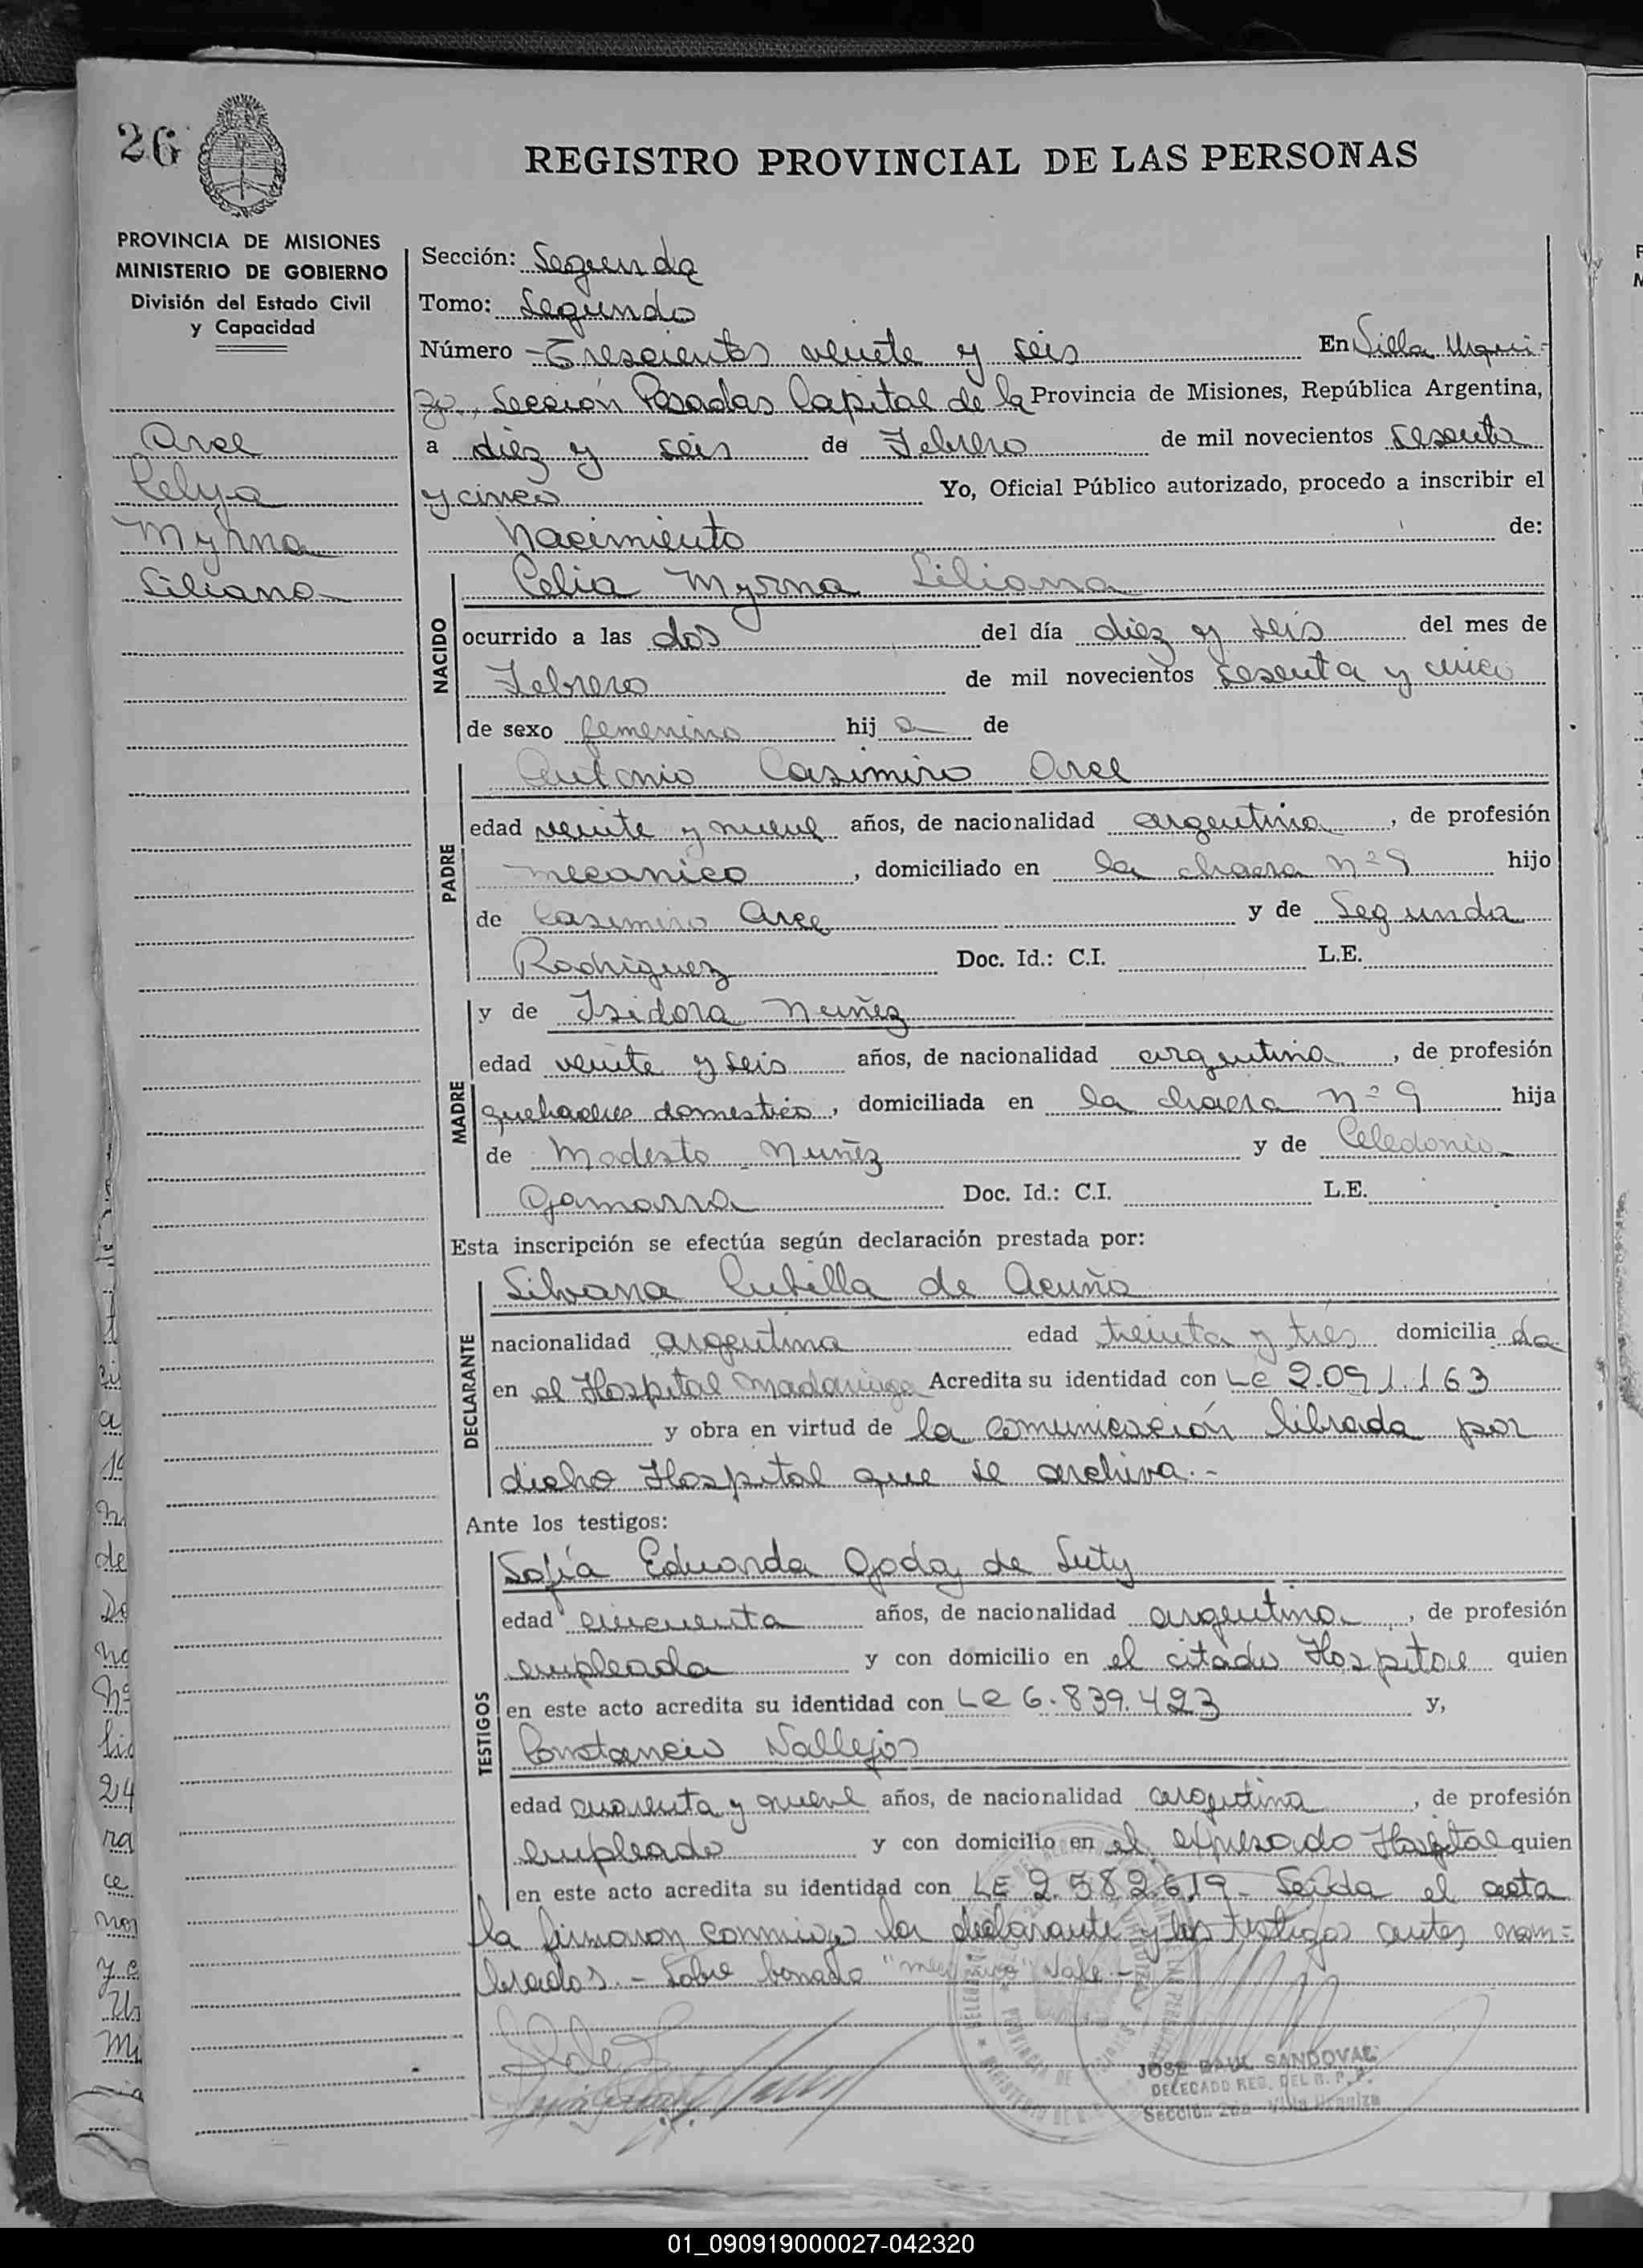 26
REGISTRO PROVINCIAL DE LAS PERSONAS
PROVINCIA DE MISIONES
MINISTERIO DE GOBIERNO
División del Estado Civil
y Capacidad
Arce
Celya
Myrna
Liliana
Sección: Segunda
Tomo: Segundo
Número - Trescientos veinte y seis En Villa Urqui-
za, Sección Posadas Capital de la Provincia de Misiones, República Argentina,
a diez y seis de Febrero de mil novecientos sesenta
y cinco Yo, Oficial Público autorizado, procedo a inscribir el
Nacimiento de:
NACIDO
Celia Myrna Liliana
ocurrido a las dos del día diez y seis del mes de
Febrero de mil novecientos sesenta y cinco
de sexo femenino hija de
PADRE
Antonio Casimiro Arce
edad veinte y nueve años, de nacionalidad argentina, de profesión
mecanico, domiciliado en la chacra nº 9 hijo
de Casimiro Arce y de Segunda
Rodriguez Doc. Id.: C.I. L.E.
MADRE
y de Isidora Nuñez
edad veinte y seis años, de nacionalidad argentina, de profesión
quehaceres domestico, domiciliada en la chacra nº 9 hija
de Modesto Nuñez y de Celedonia
Gamarra Doc. Id.: C.I. L.E.
Esta inscripción se efectúa según declaración prestada por:
DECLARANTE
Silvana Cubilla de Acuña
nacionalidad argentina edad treinta y tres domiciliada
en el Hospital Madariaga Acredita su identidad con LE 2.091.163
y obra en virtud de la comunicación librada por
dicho Hospital que se archiva.-
Ante los testigos:
TESTIGOS
Sofía Eduarda Godoy de Luty
edad cincuenta años, de nacionalidad argentina, de profesión
empleada y con domicilio en el citado Hospital quien
en este acto acredita su identidad con LE 6.839.423 y,
Constancio Vallejos
edad cuarenta y nueve años, de nacionalidad argentina, de profesión
empleado y con domicilio en el expresado Hospital quien
en este acto acredita su identidad con LE 2.582.619 - Leida el acta
la firmaron conmigo la declarante y los testigos antes nom=
brados.- Sobre borrado Vale.-
JOSE RAUL SANDOVAL
DELEGADO REG. DEL R. P. P.
Sección 2da Villa Urquiza
01_090919000027-042320